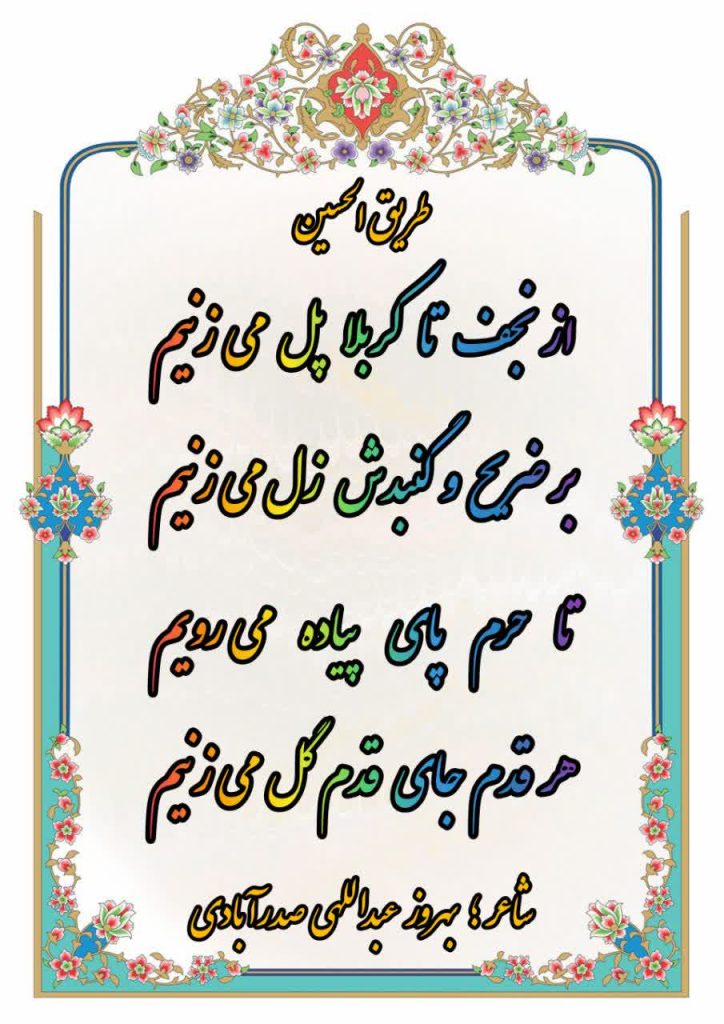 طریق الحسین
از نجف تا کربلا پل می زنیم
بر ضریح و گنبدش زل می زنیم
تا حرم پای پیاده می رویم
هر قدم جای قدم گل می زنیم
شاعر ؛ بهروز عبداللهی صدرآبادی